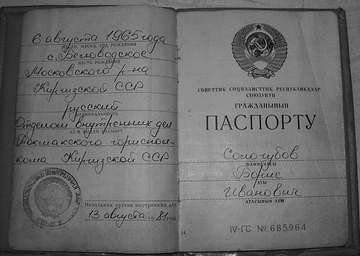 6 августа 1965 года
ЧИСЛО, МЕСЯЦ, ГОД РОЖДЕНИЯ
с. Беловодское
МЕСТО РОЖДЕНИЯ
Московского р-на
Киргизской ССР
русский
НАЦИОНАЛЬНОСТЬ
Отделом внутренних дел
КЕМ ВЫДАН ПАСПОРТ
Токмакского гориспол-
кома Киргизской ССР
Начальник органа внутренних дел
13 августа 1981 г.
СОВЕТТИК СОЦИАЛИСТИК РЕСПУБЛИКАЛАР
СОЮЗУНУН
ГРАЖДАНЫНЫН
ПАСПОРТУ
Сологубов
ФАМИЛИЯСЫ
Борис
АТЫ
Иванович
АТАСЫНЫН АТЫ
14
IV-ГС № 685964